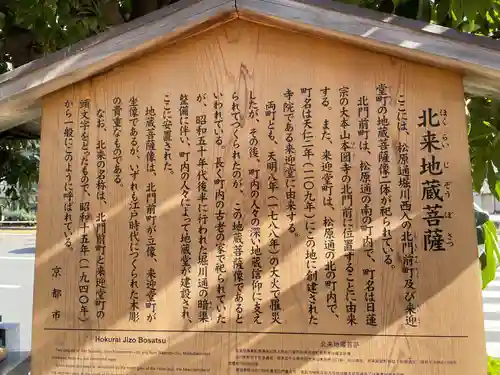 北来地蔵菩薩
ほくらいじぞうぼさつ
ここには、松原通堀川西入の北門前町及び来迎
堂町の地蔵菩薩像二体が祀られている。
北門前町は、松原通の南の町内で、町名は日蓮
宗の大本山本圀寺の北門前に位置することに由来
する。また、来迎堂町は、松原通の北の町内で、
町名は天仁二年（一一〇九年）にこの地に創建された
寺院である来迎堂に由来する。
両町とも、天明八年（一七八八年）の大火で罹災
したが、その後、町内の人々の深い地蔵信仰に支え
られてつくられたのが、この地蔵菩薩像であると
いわれている。長く町内の古老の家で祀られていた
が、昭和五十年代後半に行われた堀川通の暗渠
整備に伴い、町内の人々によって地蔵堂が建設され、
ここに安置された。
地蔵菩薩像は、北門前町が立像、来迎堂町が
坐像であるが、いずれも江戸時代につくられた木彫
の貴重なものである。
なお、北来の名称は、北門前町と来迎堂町の
頭文字をとったもので、昭和十五年（一九四〇年）
から一般にこのように呼ばれている。
京都市
Hokurai Jizo Bosatsu
北来地藏菩萨